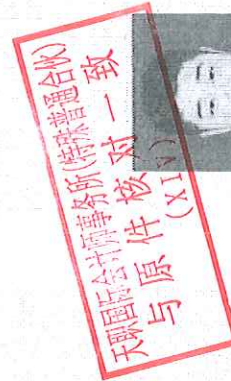 天职国际会计师事务所(特殊普通合伙)
与原件核对一致
(XIV)